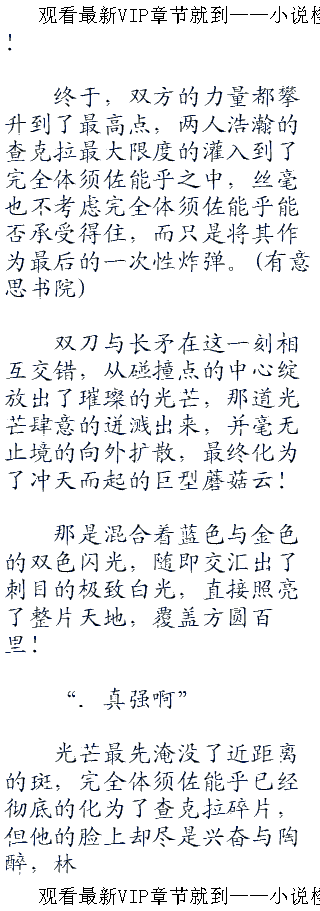 观看最新VIP章节就到——小说楼
!
终于，双方的力量都攀
升到了最高点，两人浩瀚的
查克拉最大限度的灌入到了
完全体须佐能乎之中，丝毫
也不考虑完全体须佐能乎能
否承受得住，而只是将其作
为最后的一次性炸弹。(有意
思书院)
双刀与长矛在这一刻相
互交错，从碰撞点的中心绽
放出了璀璨的光芒，那道光
芒肆意的迸溅出来，并毫无
止境的向外扩散，最终化为
了冲天而起的巨型蘑菇云!
那是混合着蓝色与金色
的双色闪光，随即交汇出了
刺目的极致白光，直接照亮
了整片天地，覆盖方圆百
里!
“．真强啊”
光芒最先淹没了近距离
的斑，完全体须佐能乎已经
彻底的化为了查克拉碎片，
但他的脸上却尽是兴奋与陶
醉，林
观看最新VIP章节就到——小说